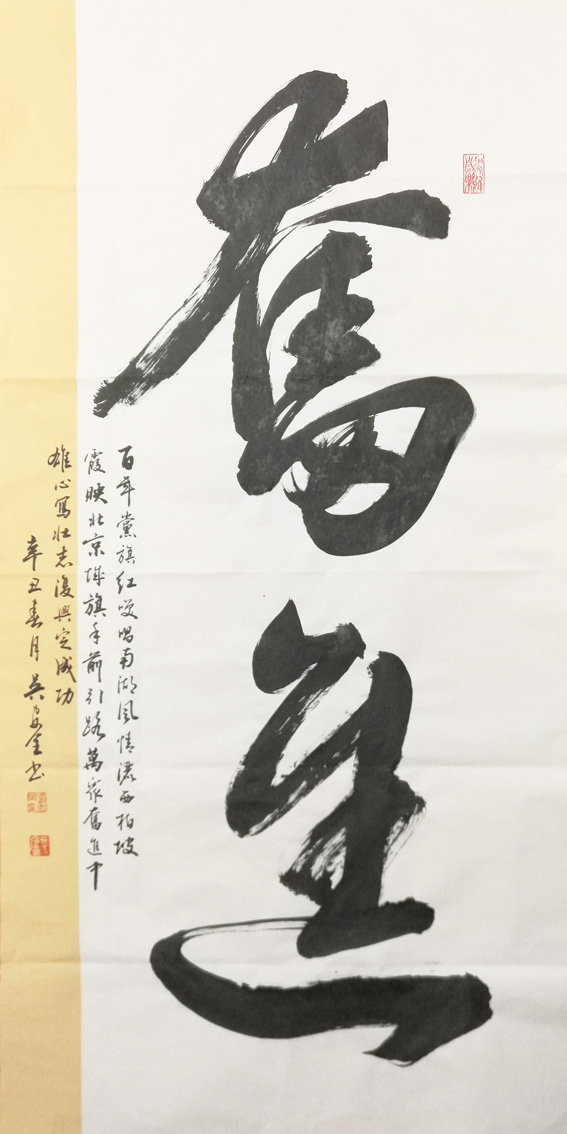 奮進
百年黨旗紅唱南湖風情濃西柏坡
霞映北京城旗手前引路萬眾奮進中
雄心寫壯志復興定成功
辛丑春月吳金書